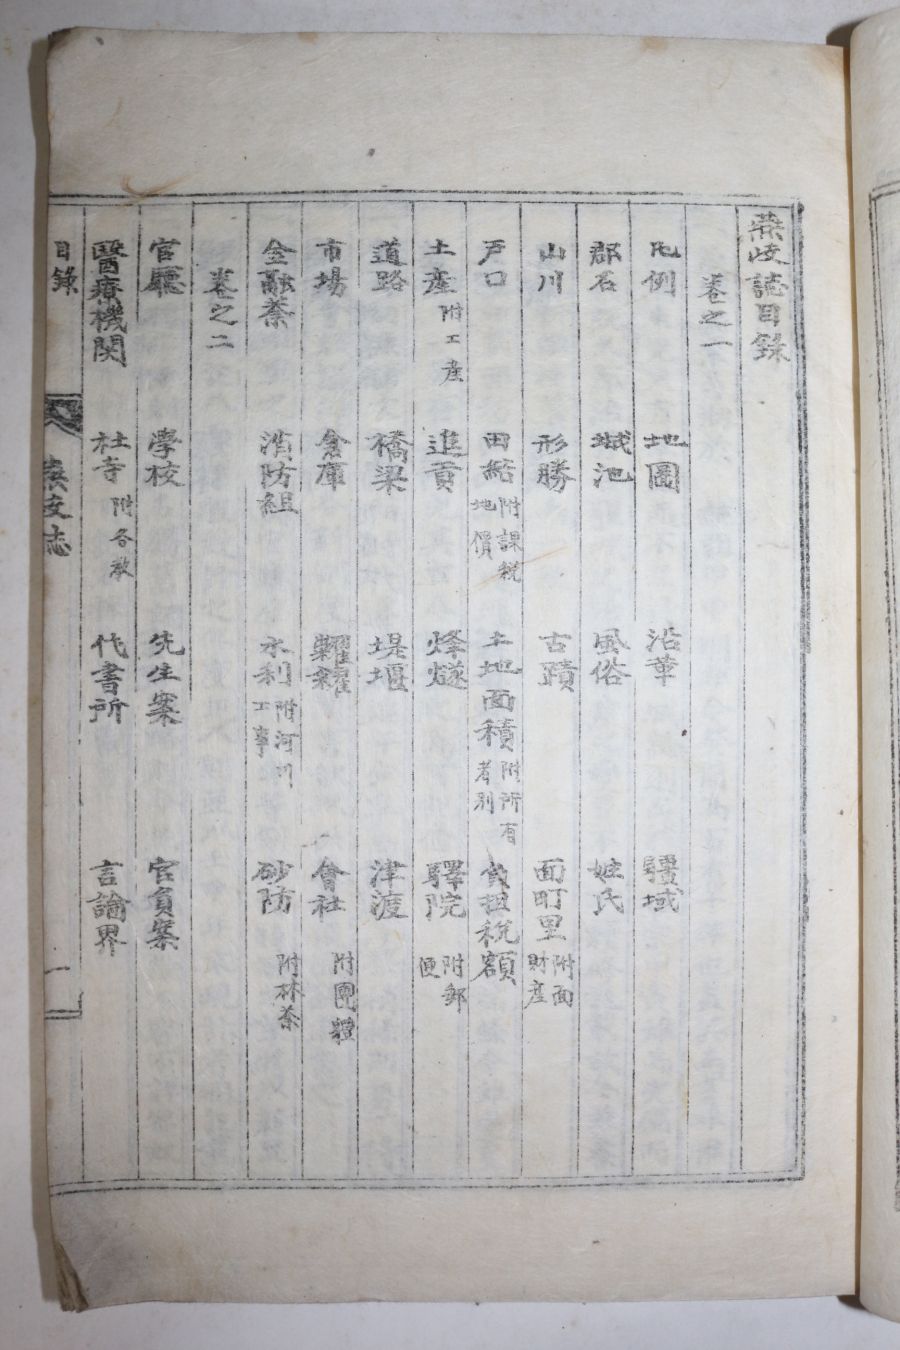 燕岐誌目錄
卷之一
凡例 地圖 沿革 疆域
郡名 城池 風俗 姓氏
山川 形勝 古蹟 面町里 附面財產
戶口 田結 附課稅地價 土地面積 附所有者別 負担稅額
土產 附工產 進貢 烽燧 驛院 附郵便
道路 橋梁 堤堰 津渡
市場 倉庫 糶糴 會社 附團體
金融業 消防組 水利 附河川工事 砂防 附林業
卷之二
官廳 學校 先生案 官負案
醫療機関 社寺 附各教 代書所 言論界
目錄 燕岐誌 一